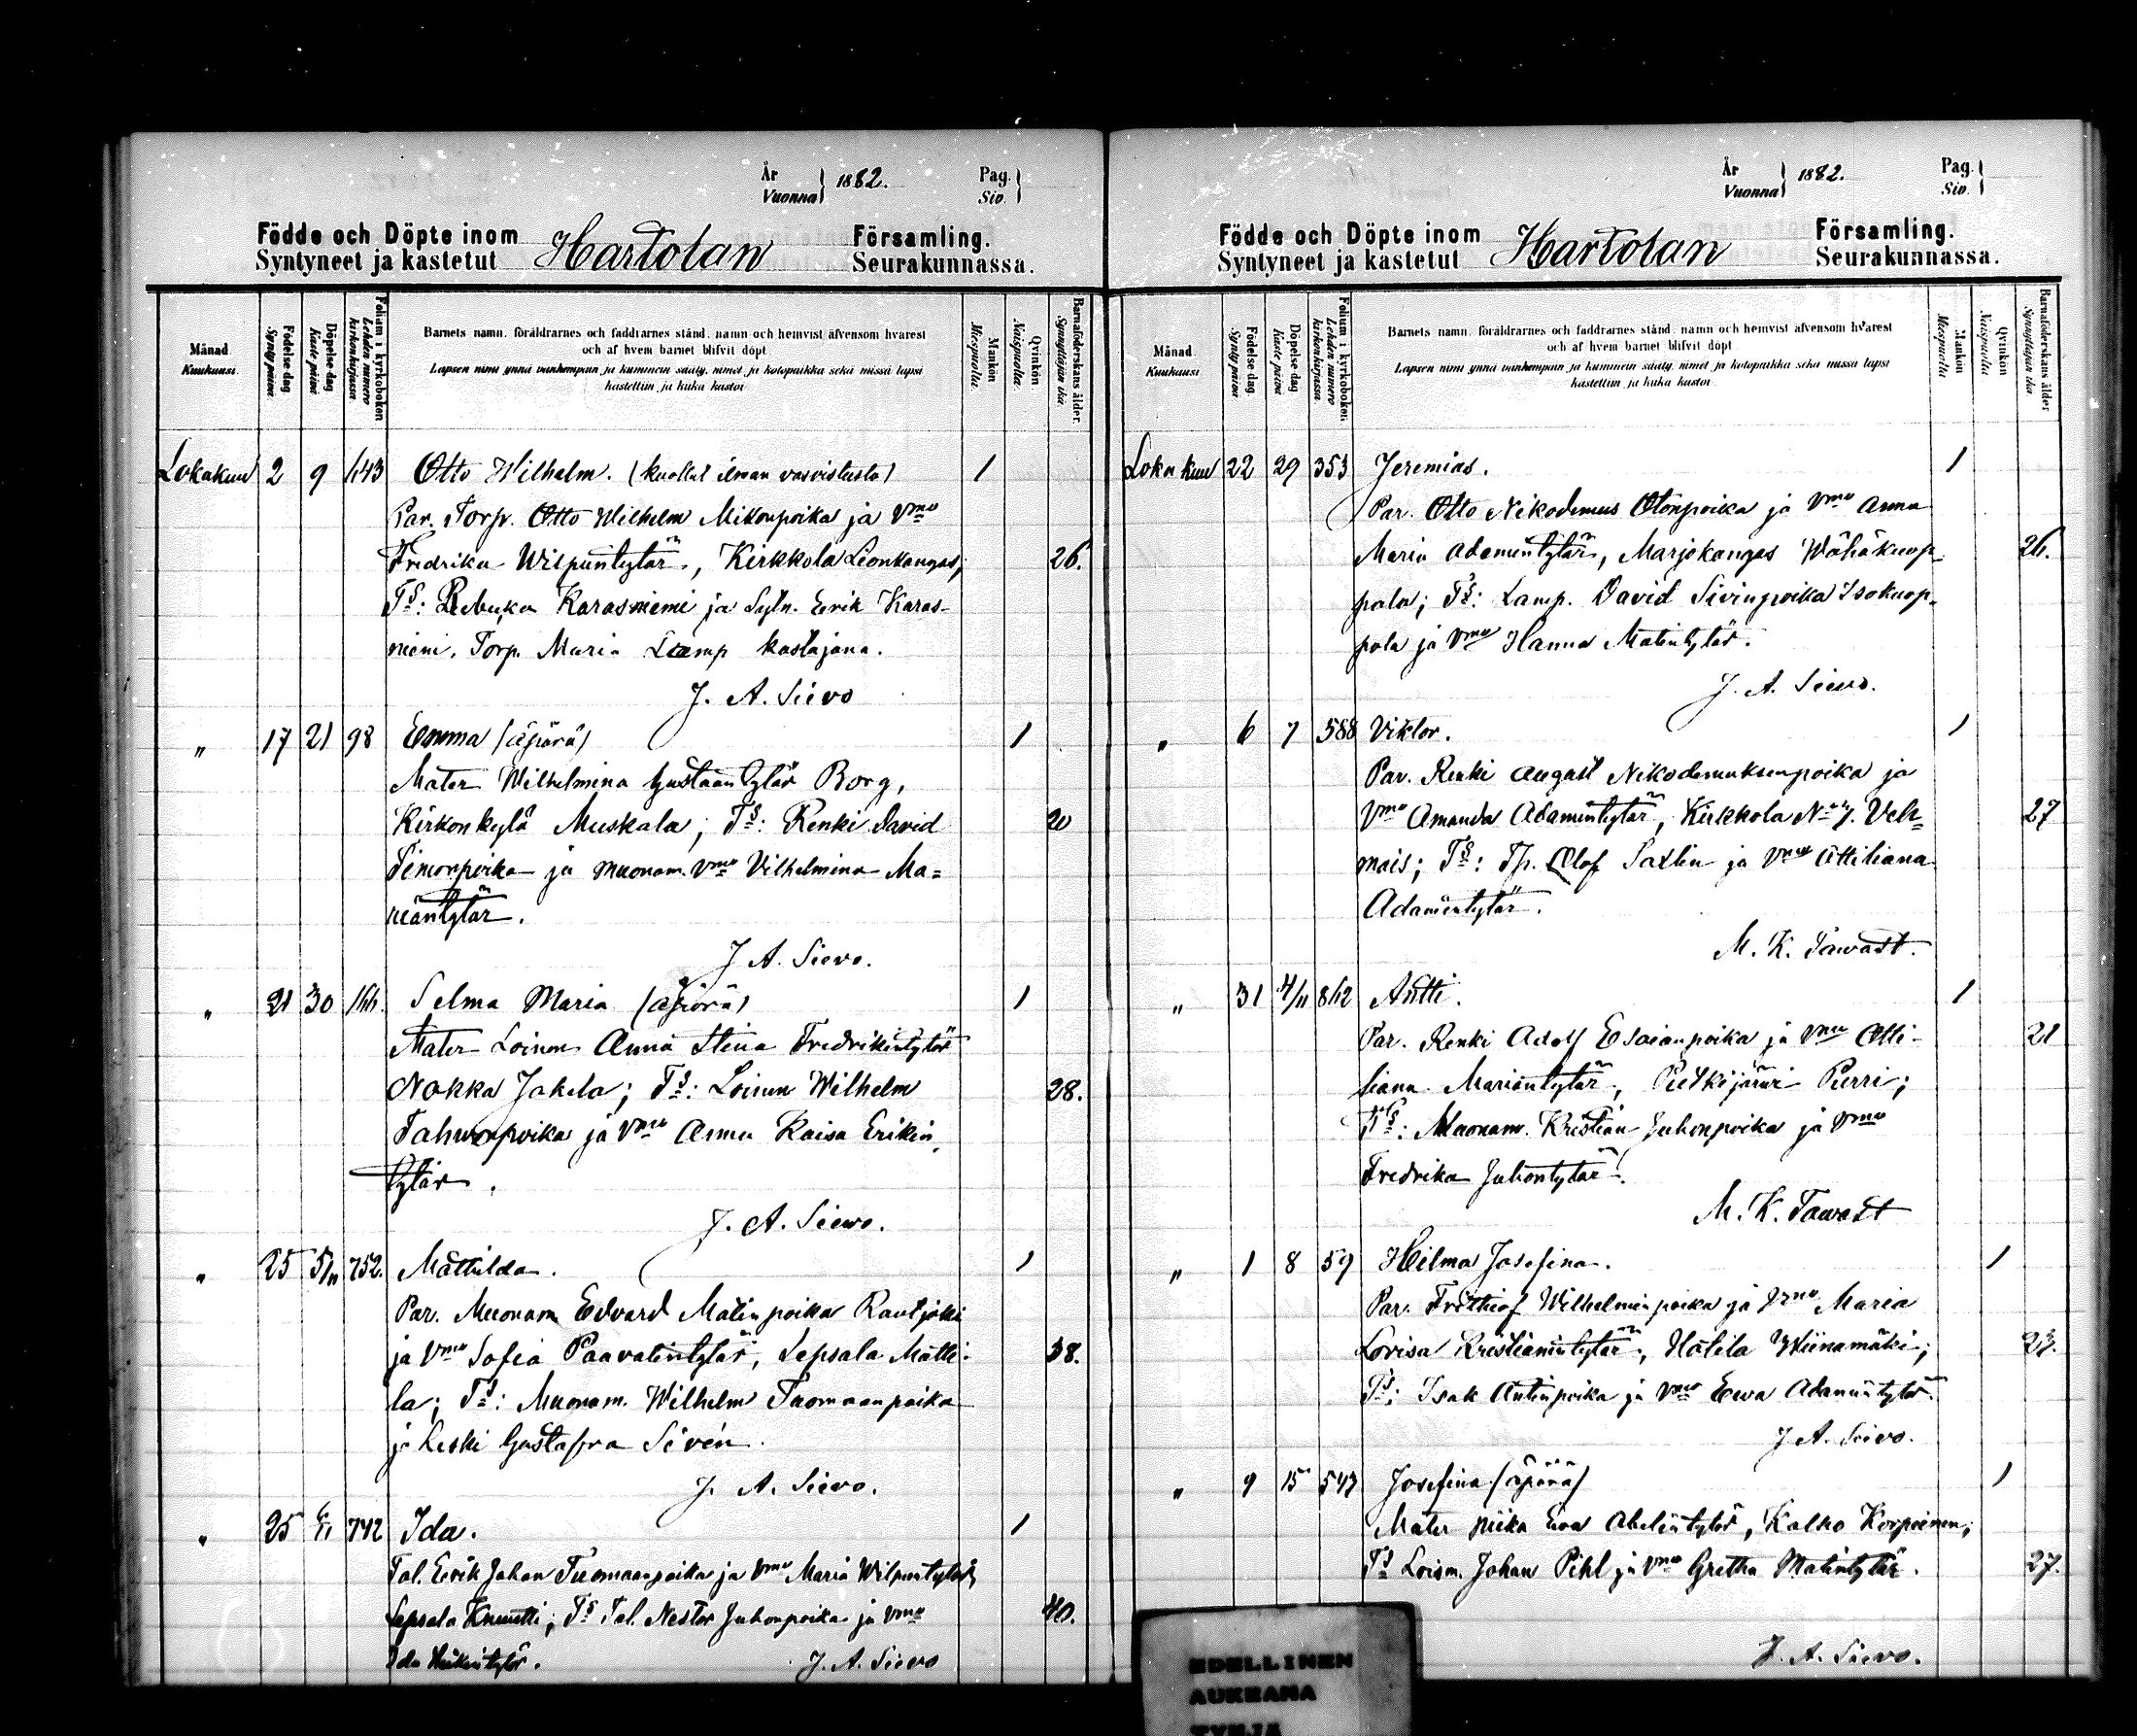 År 1882. Pag.
Vuonna Siv.
Födde och Döpte inom Hartolan Församling.
Syntyneet ja kastetut Seurakunnassa.
Månad. Kuukausi.
Födelse dag Synty päivä
Döpelse dag Kaste päivä
Folium i kyrkoboken Lehden numero kirkonkirjassa.
Barnets namn, föräldrarnes och faddrarnes stånd, namn och hemvist äfvensom hvarest
och af hvem barnet blifvit döpt
Lapsen nimi ynnä vanhempain ja kummein sääty, nimet ja kotopaikka sekä missä lapsi
kastettiin ja kuka kastoi
Mankön Miespuolia.
Qvinkön Naispuolia.
Barnaföderskans ålder. Synnyttäjän ikä
Lokakuu 2 9 143 Otto Wilhelm. (kuollut ilman vasvistusta) 1
Par. Torp. Otto Wilhelm Mikonpoika ja Vmo
Fredrika Wilpuntytär, Kirkkola Leonkangas; 26.
Ts: Karasniemi ja Sytn. Eerik Karas-
niemi. Torp. Maria Lamp kastajana.
J. A. Sievo
" 17 21 98 Emma (äpärä) 1
Mater Wilhelmina Gustaantytär Borg,
Kirkonkylä Muskala; Ts: Renki David 20
Simonpoika ja muonam. Vmo Vilhelmina Ma=
neäntytär.
J A. Sievo.
" 21 30 166. Selma Maria (äpärä) 1
Mater Loinen Anna Stina Fredrikintytär
Nokka Jakela; Ts: Loinen Wilhelm 28.
Tahwonpoika ja Vmo Anna Kaisa Erikin
tytär.
J. A. Sievo.
" 25 5/11 752. Mathilda. 1
Par. Muonam Edvard Matinpoika Rautjoki
ja Vmo Sofia Paavalintytär, Lepsala Matti- 38.
la; Ts: Muonam. Wilhelm Tuomaanpoika
ja Leski Gustafva Sivén.
J. A. Sievo.
" 25 742 Ida. 1
Tal. Eerik Johan Tuomaanpoika ja Vmo Maria Wilpuntytär,
Lepsala Knuutti; Ts Tal. Nestor Juhonpoika ja Vmo 40.
Ida Heikintytär. J. A. Sievo
År 1882. Pag.
Vuonna Siv.
Födde och Döpte inom Hartolan Församling.
Syntyneet ja kastetut Seurakunnassa.
Månad. Kuukausi
Födelse dag Synty päivä
Döpelse dag Kaste päivä
Folium i kyrkoboken Lehden numero kirkonkirjassa.
Barnets namn, föräldrarnes och faddrarnes stånd, namn och hemvist äfvensom hvarest
och af hvem barnet blifvit döpt
Lapsen nimi ynnä vanhempain ja kummein sääty, nimet ja kotopaikka sekä missä lapsi
kastettiin ja kuka kastoi
Mankön Miespuolia
Qvinkön Naispuolia
Barnaföderskans ålder Synnyttäjän ikä
Lokakuu 22 29 353 Jeremias. 1
Par. Otto Nikodemus Otonpoika ja Vmo Anna
Maria Adamintytär, Marjokangas Wähäkuop- 26.
pola; Ts: Lamp. David Sivinpoika Isokuop-
pola ja Vmo Hanna Matintytär.
J. A. Sievo.
" 6 7 588 Viktor. 1
Par. Renki August Nikodemuksenpoika ja
Vmo Amanda Adamintytär, Kirkkola No 7. Veh= 27
mais; Ts: Tp. Olof Saxlin ja Vmo Ottiliana
Adamintytär.
M. K. Tawast.
" 31 4/11 862 Antti. 1
Par. Renki Adolf Esaianpoika ja Vmo Otti- 21
liana Mariantytär, Putkijärvi Purri;
Ts: Muonam. Kristian Juhonpoika ja Vmo
Fredrika Juhontytär.
M. K. Tawast
" 1 8 59 Hilma Josefina. 1
Par. Frithiof Wilhelminpoika ja Vmo Maria
Lovisa Kristianintytär, Hatila Wiinamäki; 23.
Ts: Isak Antinpoika ja Vmo Ewa Adamintytär.
J A. Sievo.
" 9 15 547 Josefina (äpärä) 1
Mater piika Eva Abelintytär, Kalho Korpoinen;
Ts Loism. Johan Pihl ja Vmo Gretha Matintytär. 27.
J. A. Sievo.
EDELLINEN
AUKEAMA
TYHJÄ